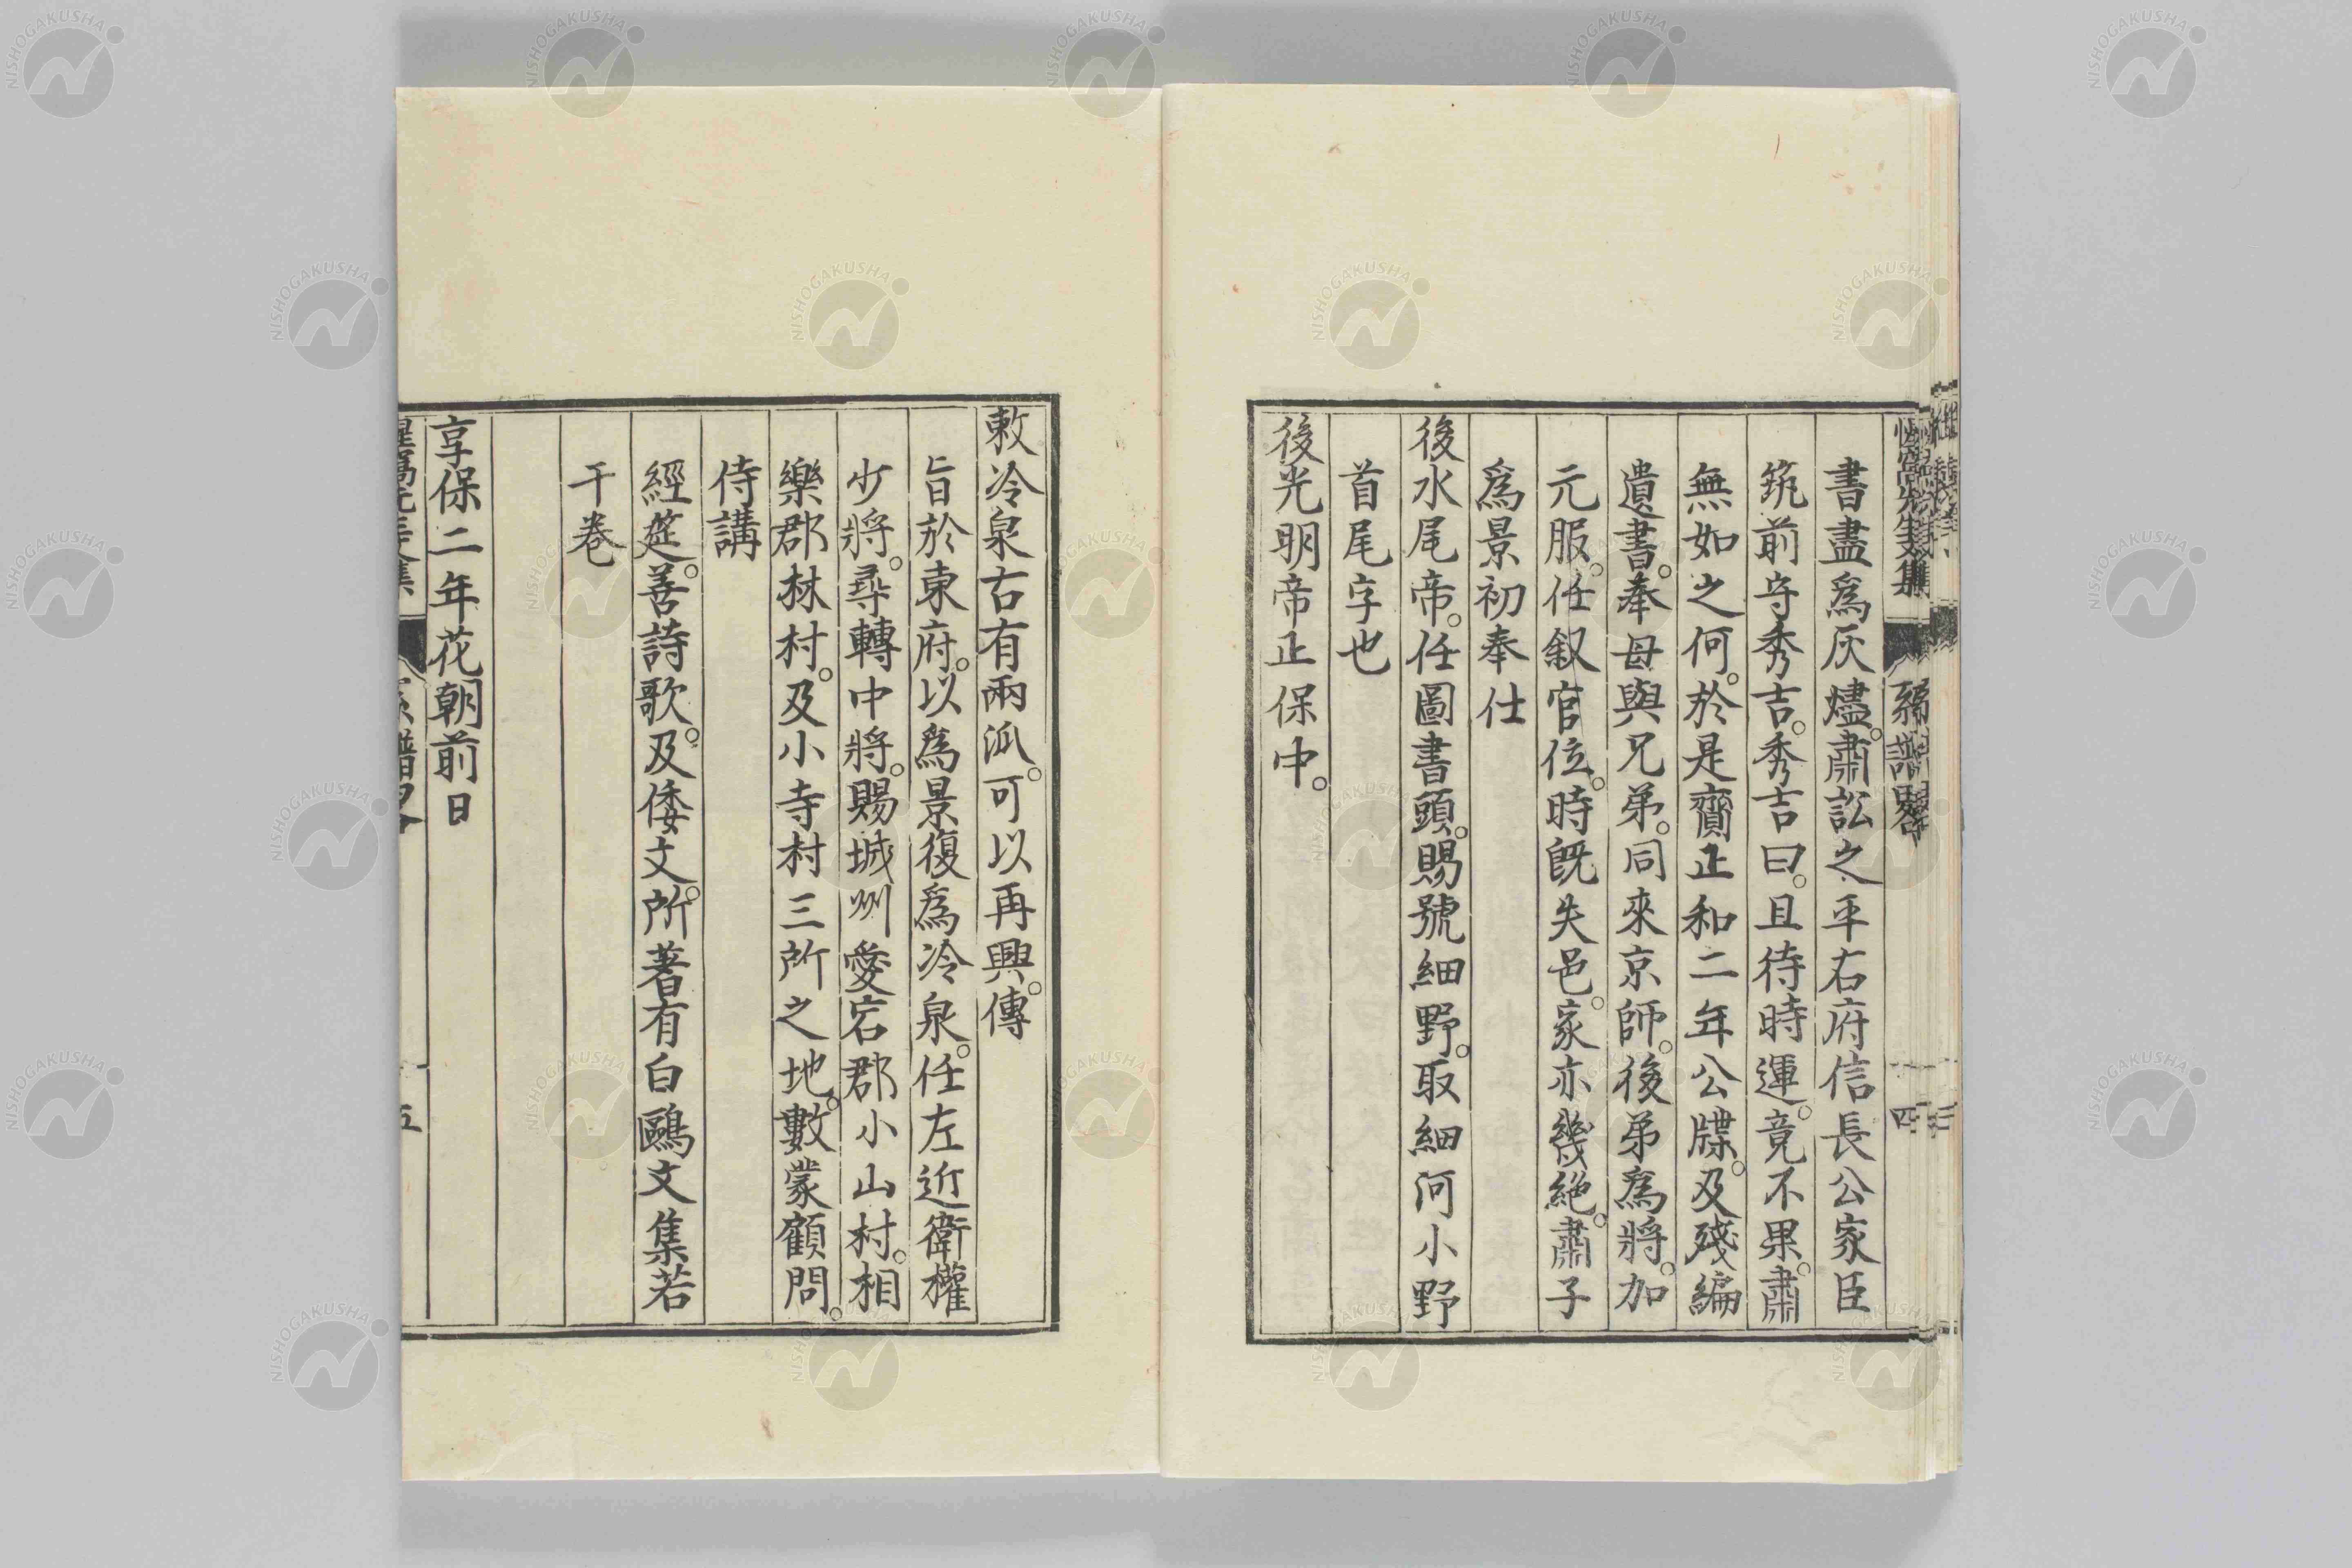 書盡爲灰燼。肅訟之平右府信長公家臣
筑前守秀吉。秀吉曰。且待時運。竟不果。肅
無如之何。於是齎正和二年公牒。及殘編
遺書。奉母與兄弟。同來京師。後弟爲將。加
元服。任叙官位。時旣失邑。家亦幾絶。肅子
爲景初奉仕
後水尾帝。任圖書頭。賜號細野。取細河小野
首尾字也
後光明帝正保中。
四
敕冷泉古有兩流。可以再興。傳
旨於東府。以爲景復爲冷泉。任左近衛權
少將。尋轉中將。賜城州愛宕郡小山村。相
樂郡林村。及小寺村三所之地。數蒙顧問。
侍講
經筵。善詩歌。及倭文。所著有白鷗文集若
干卷
享保二年花朝前日
五
NISHOGAKUSHA